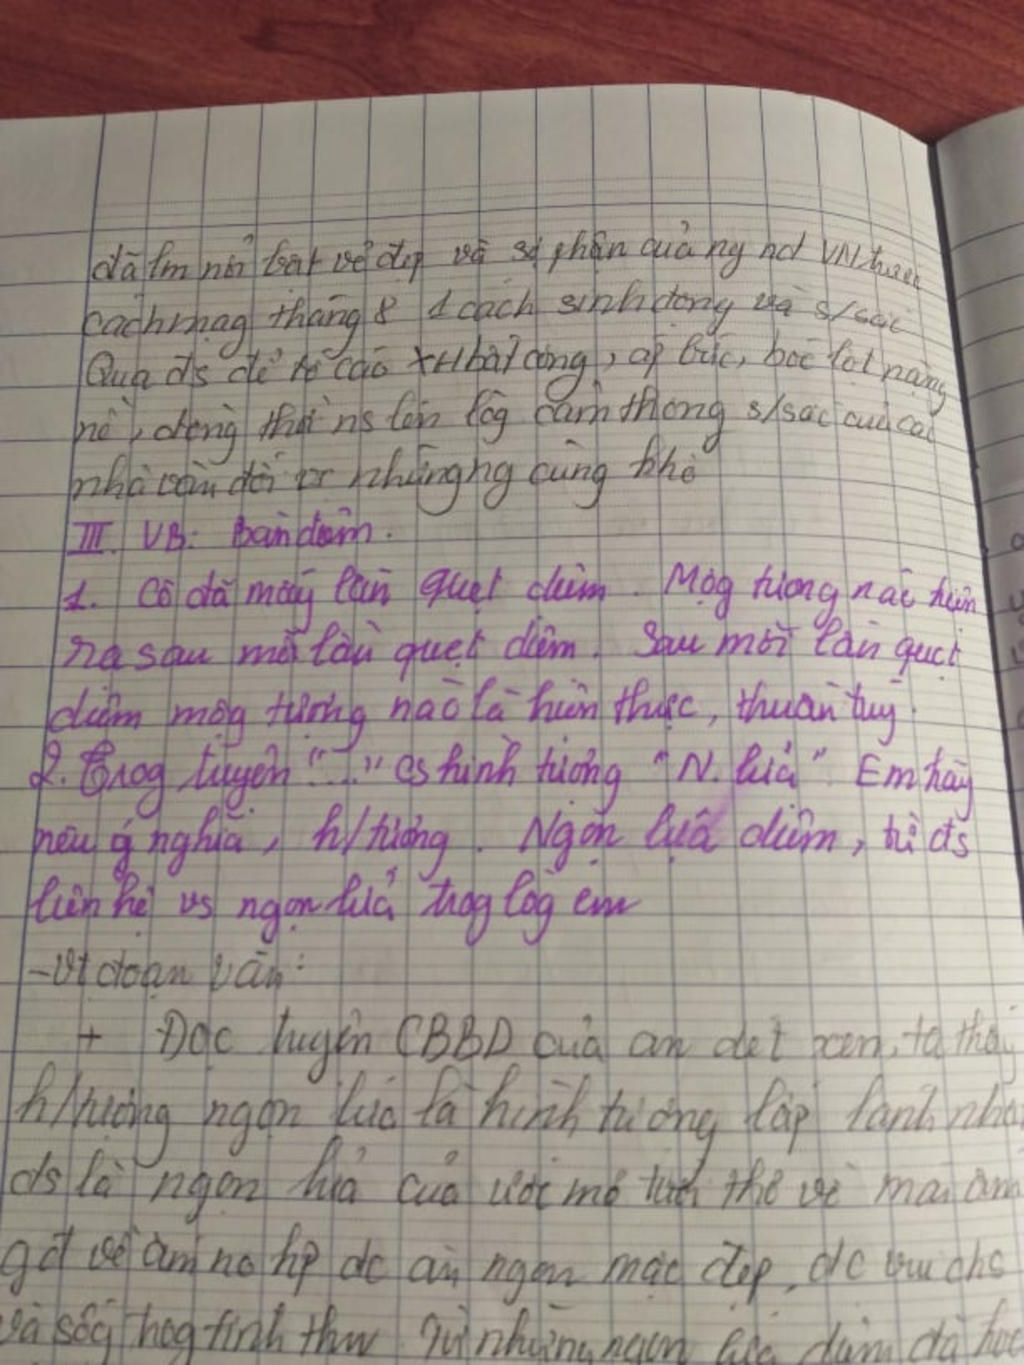 đã lm nổi bật vẻ đẹp và số phận của ng nd VN trước
cách mạg tháng 8 1 cách sinh động và s/sắc
Qua đs để tố cáo XH bất công, áp bức, bóc lột nặng
nề, đồng thời ns lên lòg cảm thông s/sắc của các
nhà văn đối vs những ng cùng khổ
III. VB: Bán diêm.
1. Cô đã mấy lần quẹt diêm. Mộg tưởng nào hiện
ra sau mỗi lần quẹt diêm. Sau mỗi lần quẹt
diêm mộg tưởng nào là hiện thực, thuần túy.
2. Trog truyện "..." có hình tượng "N. lửa" Em hãy
nêu ý nghĩa, h/tượng. Ngọn lửa diêm, từ đs
liên hệ vs ngọn lửa trog lòg em
-Vt đoạn văn:
+ Đọc truyện CBBD của an đét xen, ta thấy
h/tượng ngọn lửa là hình tượng lấp lánh nhất
đs là ngọn lửa của ước mơ tuổi thơ về mái ấm
gđ về ấm no hp đc ăn ngon mặc đẹp, đc vui chs
và sốg trog tình thw Từ những ngọn lửa diêm đã